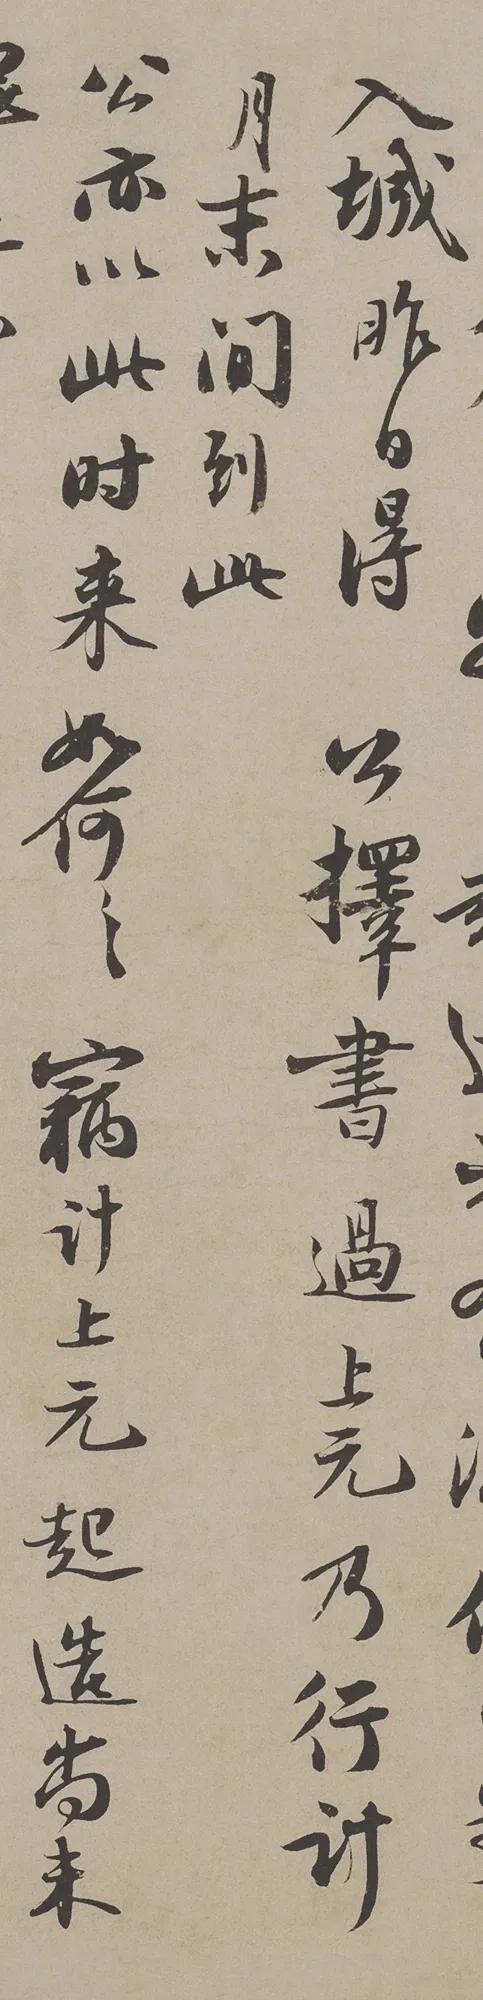 入城昨日得公擇書過上元乃行計
月末間到此
公亦以此时来如何〻竊計上元起造尚未